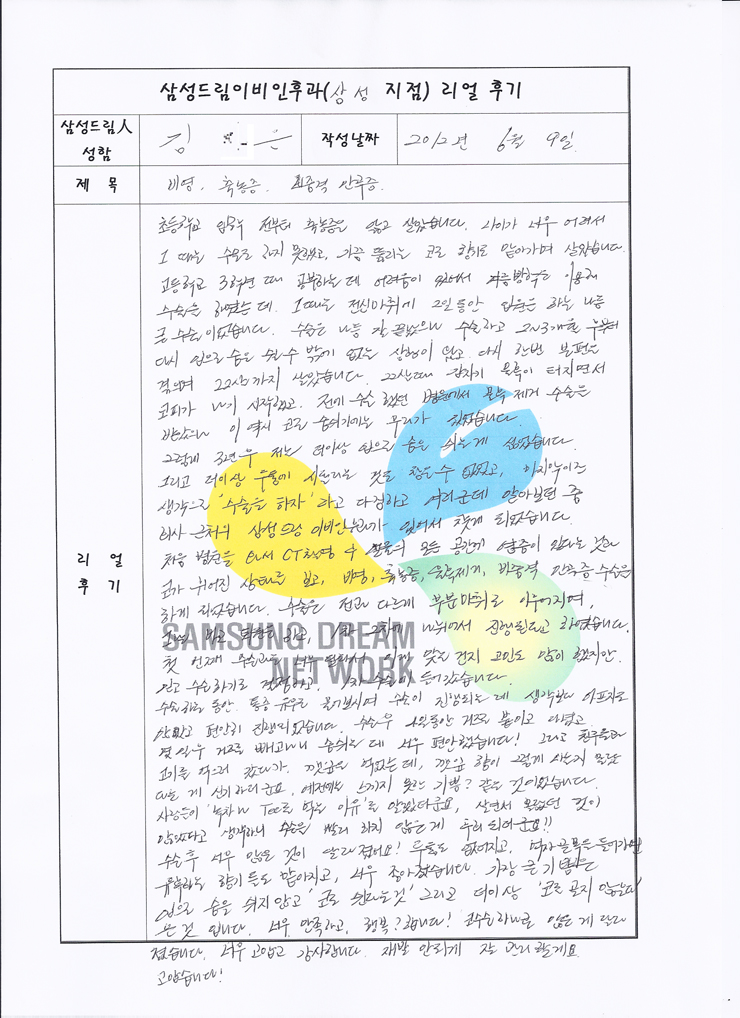 삼성드림이비인후과(삼성 지점) 리얼 후기
삼성드림人 성함
김 은
작성날짜
2012년 6월 9일
제 목
비염, 축농증, 비중격 만곡증.
리 얼
후 기
초등학교 입학 전부터 축농증을 앓고 살았습니다. 나이가 너무 어려서
그 때는 수술도 하지 못했고, 가끔 뚫리는 코로 향기를 맡아가며 살았습니다.
고등학교 3학년 때 공부하는데 어려움이 있어서 겨울방학을 이용해
수술을 하였는데. 그때는 전신마취에 2일동안 입원을 하는 나름
큰 수술이었습니다. 수술은 나름 잘 끝났으나 수술하고 2~3개월 후부터
다시 입으로 숨을 쉴 수 밖에 없는 상황이 왔고. 다시 한번 불편을
겪으며 22살까지 살았습니다. 22살때 갑자기 물혹이 터지면서
코피가 나기 시작했고. 전에 수술했던 병원에서 물혹 제거 수술을
받았으나 이 역시 코로 숨쉬기에는 무리가 있었습니다.
그렇게 3년 후 저는 더이상 입으로 숨을 쉬는게 싫었습니다.
그리고 더이상 후유증에 시달리는 것도 참을 수 없었고, 마지막이란
생각으로 '수술을 하자' 라고 다짐하고 여러군데 알아보던 중
회사 근처의 삼성드림 이비인후과가 있어서 찾게 되었습니다.
처음 병원을 와서 CT촬영 후 얼굴의 모든 공간에 염증이 있다는 것과
코가 휘어진 상태를 보고, 비염, 축농증, 물혹제거, 비중격 만곡증 수술을
하게 되었습니다. 수술은 전과 다르게 부분마취로 이루어지며,
당일 바로 퇴원하고, 나뉘어서 진행된다고 하였습니다.
첫 번째 수술과는 너무 달라서 이게 맞는건지 고민도 많이 했지만.
믿고 수술하기로 결정하고, 수술이 들어갔습니다.
수술하는 동안. 통증 유무를 물어보시며 수술이 진행되는데 생각보다 아프지도
않았고 편안히 진행되었습니다. 수술 후 4일동안 거즈를 붙이고 다녔고.
몇 일 후 거즈를 빼고나니 숨쉬는데 너무 편안했습니다! 그리고 친구들과
고기를 먹으러 갔다가. 깻잎을 먹었는데, 깻잎 향이 그렇게 나는지 몰랐
다는게 신기하더군요. 예전에는 느끼지 못한 기쁨? 같은 것이었습니다.
사람들이 '녹차나 Tea를 먹는 이유'를 알았다군요, 살면서 몰랐던 것이
많았다고 생각하니 수술을 빨리 하지 않은게 후회 되더군요!!
수술 후 너무 많은 것이 달라졌어요! 두통도 없어지고, 먹자골목을 들어가면
유혹하는 향기들도 맡아지고, 너무 좋아졌습니다. 가장 큰 기쁨은
입으로 숨을 쉬지않고 '코로 쉰다는것' 그리고 더이상 '코를 골지 않는다'
는 것 입니다. 너무 만족하고, 행복?합니다! 코수술 하나로 많은 게 달라
졌습니다. 너무 고맙고 감사합니다. 재발 안하게 잘 관리할게요.
고맙습니다!
SAMSUNG DREAM
NETWORK